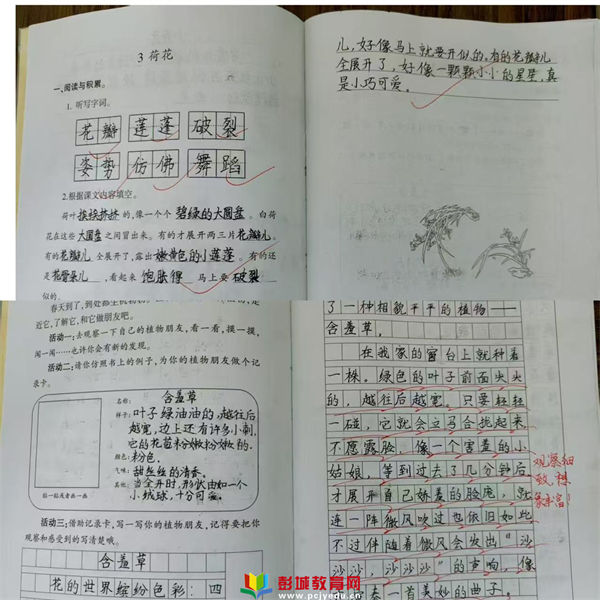 3 荷花
一、阅读与积累。
1. 听写字词。
花瓣 莲蓬 破裂
姿势 仿佛 舞蹈
2.根据课文内容填空。
荷叶挨挨挤挤的,像一个个 碧绿的大圆盘 。白荷
花在这些 大圆盘 之间冒出来。有的才展开两三片花瓣儿。
有的花瓣儿 全展开了,露出嫩黄色的小莲蓬。有的还
是花骨朵儿 ,看起来 饱胀得 马上要 破裂
似的。
儿,好像马上就要开似的。有的花瓣儿
全展开了,好像一颗颗小小的星星,真
是小巧可爱。
近它,了解它,和它做朋友吧。
活动一:去观察一下自己的植物朋友,看一看,摸一摸,
闻一闻……也许你会有新的发现。
活动二:请你仿照书上的例子,为你的植物朋友做个记
录卡。
名称: 含羞草
样子: 叶子绿油油的,越往后
越宽,边上还有许多小刺,
它的花苞粉嫩粉嫩的。
颜色: 粉色。
气味: 甜丝丝的清香。
其他: 当全开时,形状由如一个
小绒球,十分可爱。
贴一贴或者画一画
活动三:借助记录卡,写一写你的植物朋友,记得要把你
观察和感受到的写清楚哦。
含羞草
花的世界缤纷色彩:四
了一种相貌平平的植物——
含羞草。
在我家的窗台上就种着
一株。绿色的叶子前面尖尖
的,越往后越宽。只要轻轻
一碰,它就会立马合拢起来,
不愿露脸,像一个害羞的小
姑娘,等到过去了几分钟后,
才展开自己娇羞的脸庞,就
连一阵微风吹过也依旧如此,
不过伴随着微风会发出“沙
沙沙,沙沙沙”的声响,像
奏一首美妙的曲子。
观察细
致,想
象丰富!
彭城教育网
www.pcjyedu.cn